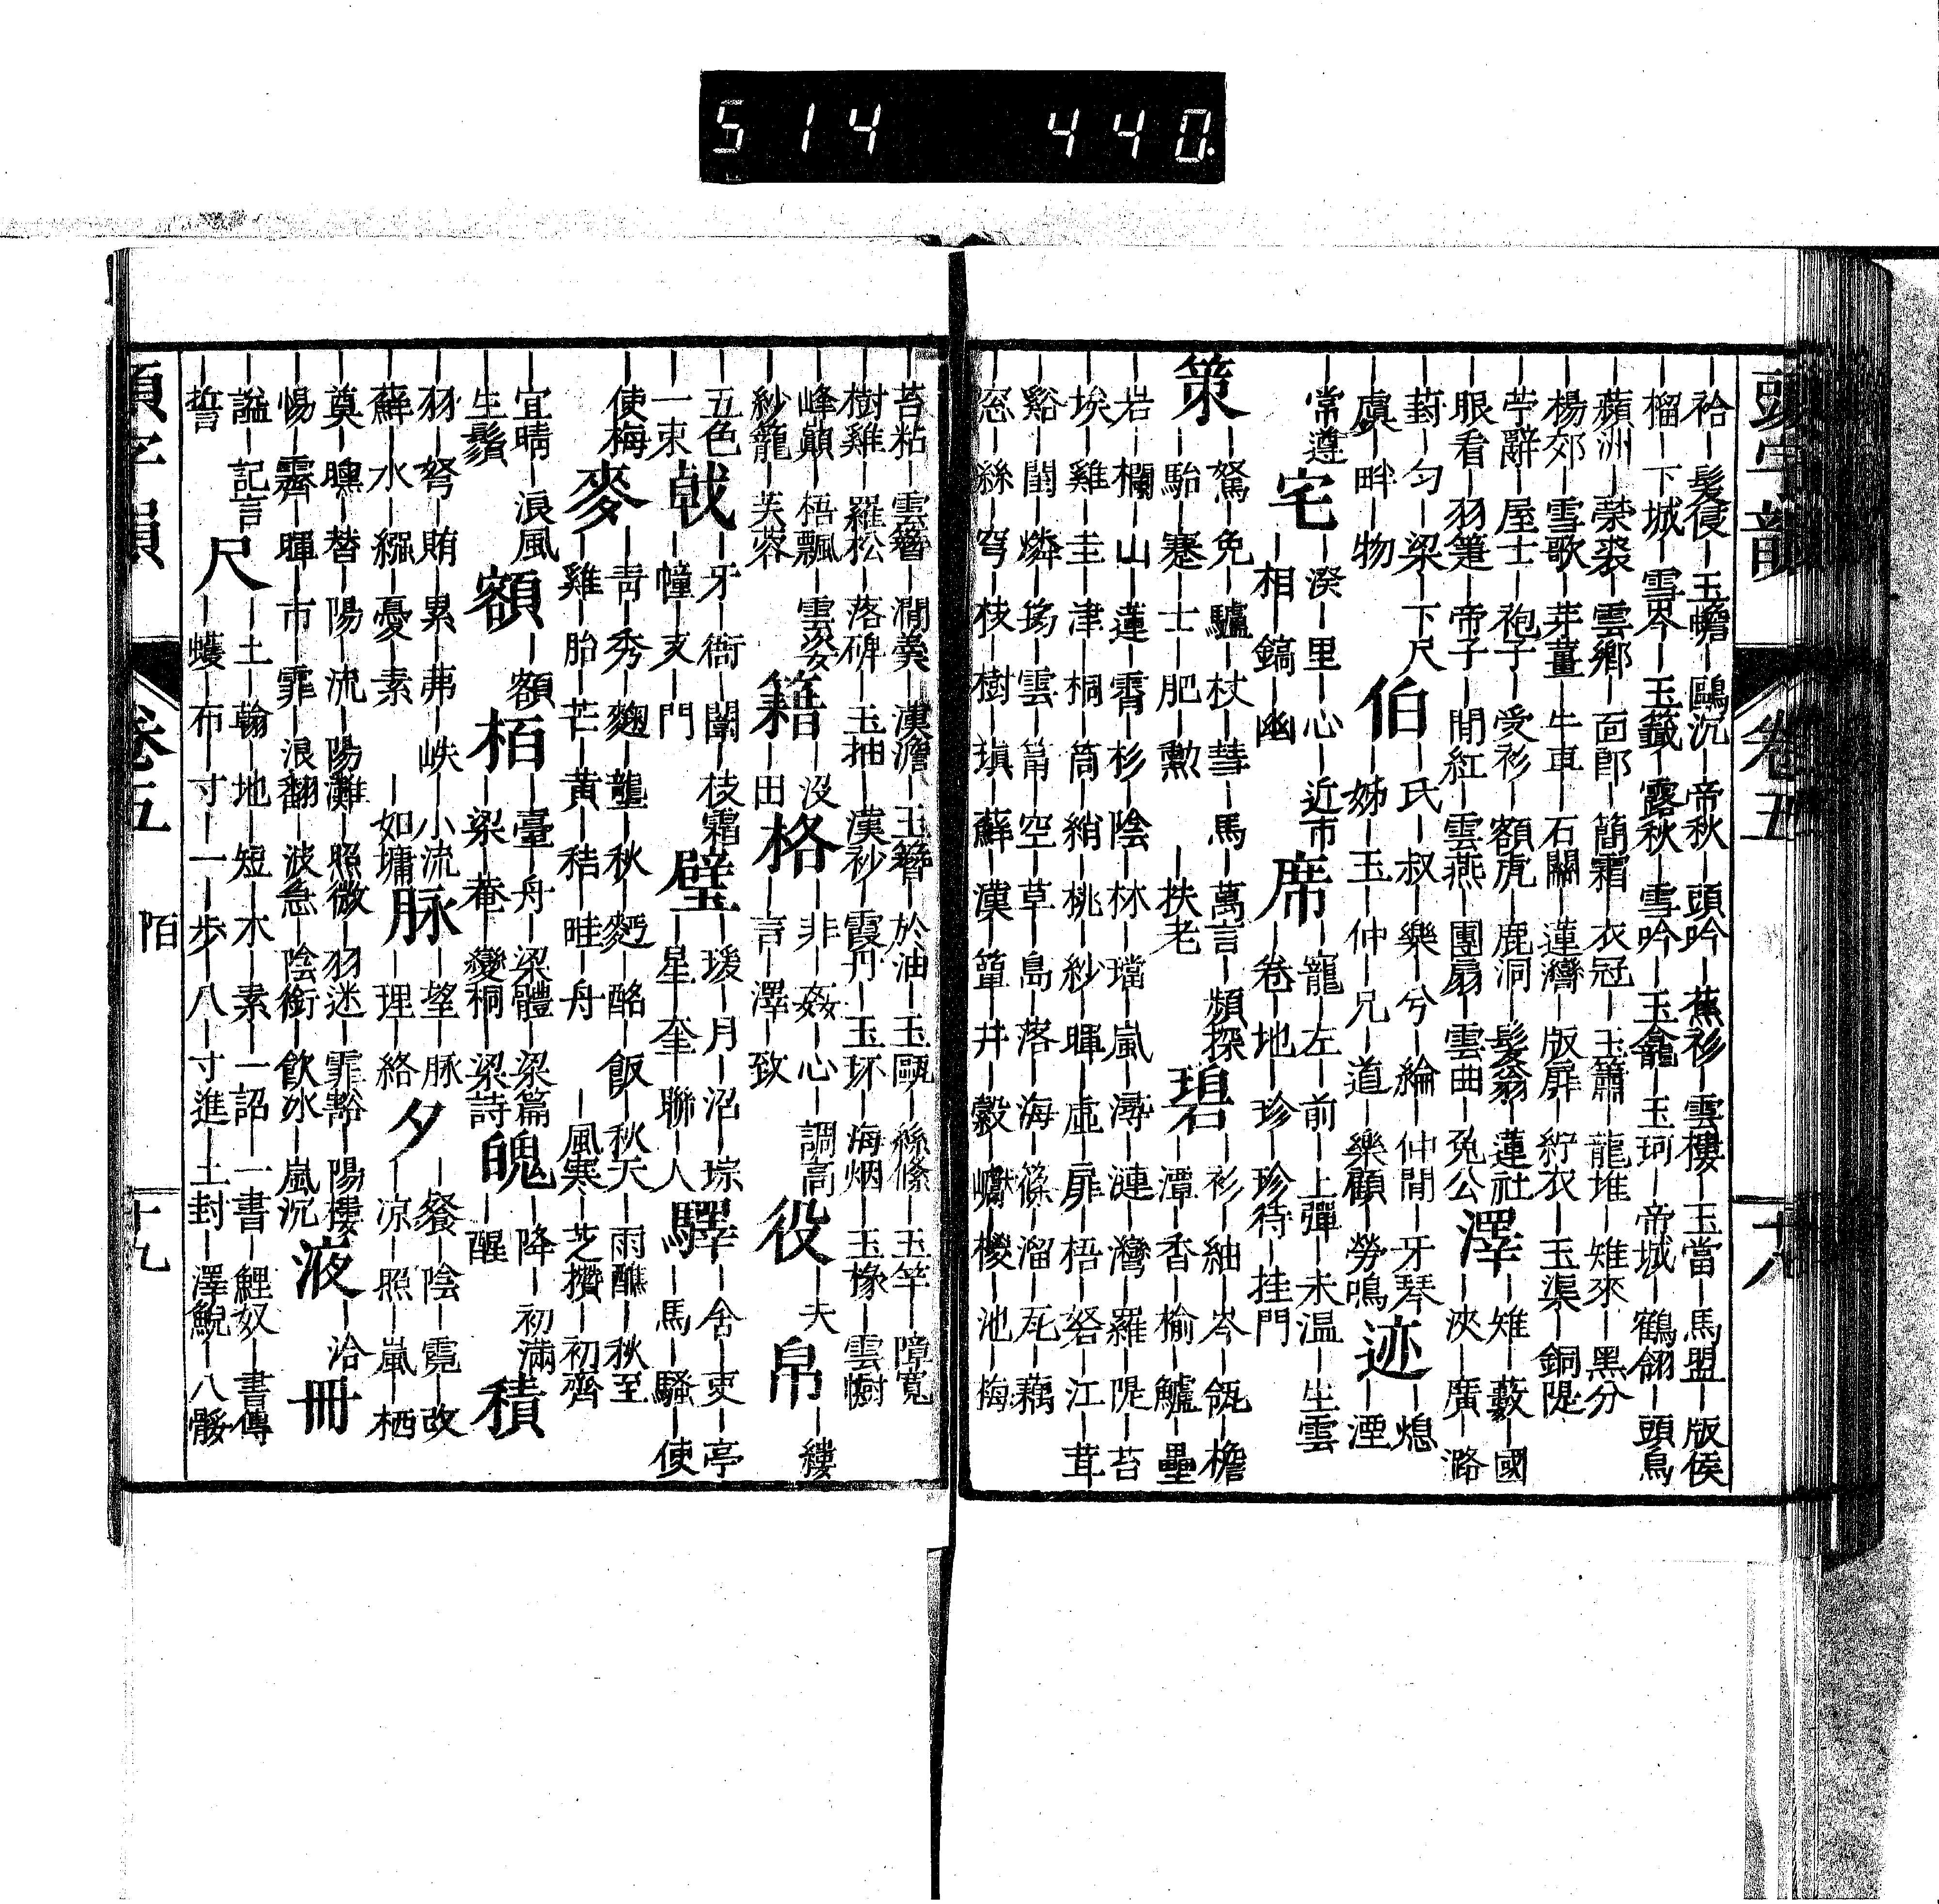 5 14 440.
頭字韻 卷五 十八
―袷―髮侵―玉蟾―鷗沉―帝秋―頭吟―蕉衫―雲樓―玉當―馬盟―版侯
―榴―下城―雪岑―玉籤―露秋―雪吟―玉龕―玉珂―帝城―鶴翎―頭烏
―蘋洲―榮裘―雲鄉―面郎―簡霜―衣冠―玉簫―龍堆―雉來―黑分
―楊郊―雪歌―芽薑―牛車―石關―蓮灣―版扉―紵衣―玉渠―銅隄
―苧辭―屋士―袍子―受衫―額虎―鹿洞―髮翁―蓮社
―眼看―羽箑―帝子―閒紅―雲燕―團扇―雲曲―兔公
澤―雉―藪―國
―浹―廣―潞
―葑―勻―梁―下尺
―虞―畔―物
伯―氏―叔―樂―兮―綸―仲閒―牙琴
―姊―玉―仲―兄―道―樂顧―勞鳴
迹―熄
―湮
―常遵
宅―湀―里―心―近市
―相―鎬―幽
席―寵―左―前―上彈―未温―生雲
―卷―地―珍―珍待―挂門
策―駑―免―驢―杖―彗―馬―萬言―頻探
―駘―蹇―士―肥―勲―扶老
碧―衫―紬―岑―瓴―檐
―潭―香―榆―鱸―壘
―岩―欄―山―蓮―霄―杉―陰―林―璫―嵐―潯―漣―灣―羅―隄―苔
―埃―雞―圭―津―桐―筒―綃―桃―紗―暉―虛―扉―梧―硌―江―茸
―谿―閨―燐―塢―雲―篇―空―草―島―落―海―篠―溜―瓦―藕
―窓―絲―穹―枝―樹―瑱―蘇―漢―簞―井―縠―巘―櫻―池―梅
―苔粘―雲簪―澗羮―漢澹―玉簪―於油―玉甌―絲絛―玉竿―障寬
―樹雞―羅松―落碑―玉抽―漢杪―霞丹―玉環―海烟―玉椽―雲幮
―峰巔―梧飄―雲姿
―紗籠―芙蓉
籍―没
―田
格―非―姦―心―調高
―言―澤―致
役―夫
帛―縷
―五色
―一束
戟―牙―衙―闈―枝霜
―幢―支―門
璧―瑗―月―沼―琮
―星―奎―聯―人
驛―舍―吏―亭
―馬―騷―使
―使梅
麥―青―秀―麴―壟―秋―麪―酩―飯―秋天―雨醮―秋至
―雞―胎―芒―黃―秸―畦―舟―風寒―芝攢―初齊
―宜晴―浪風
―生鬚
額―額
栢―臺―舟―梁體―梁篇
―梁―菴―變桐―梁詩
魄―降―初滿
―醒
積
―羽―弩―賄―累―弗―岥―小流
―蘚―水―縕―憂―素―如墉
脉―望―脉
―理―絡
夕―餐―陰―霓―改
―凉―照―嵐―栖
―奠―曛―替―陽―流―陽灘―照微―羽迷―霏豁―陽樓
―惕―霽―暉―市―霏―浪翻―波急―陰銜―飲冰―嵐沉
液―洽
冊
―謚―記言
―誓
尺―土―翰―地―短―木―素―一詔―一書―鯉奴―書傳
―蠖―布―寸―一―步―八―寸進―土封―澤鯢―八骸
頭字韻 卷五 陌 十九